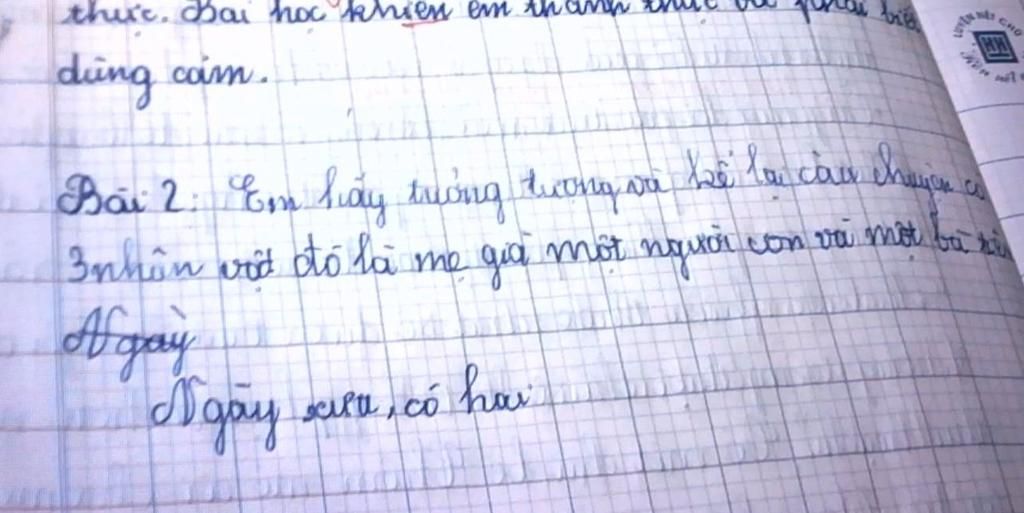 thực. Bài học khiên em thành thực và phải biế
dũng cảm.
Bài 2: Em hãy tưởng tượng và kể lại câu chuyện c
3 nhân vật đó là mẹ già một người con và một bà
Ngày
Ngày xưa, có hai
HH